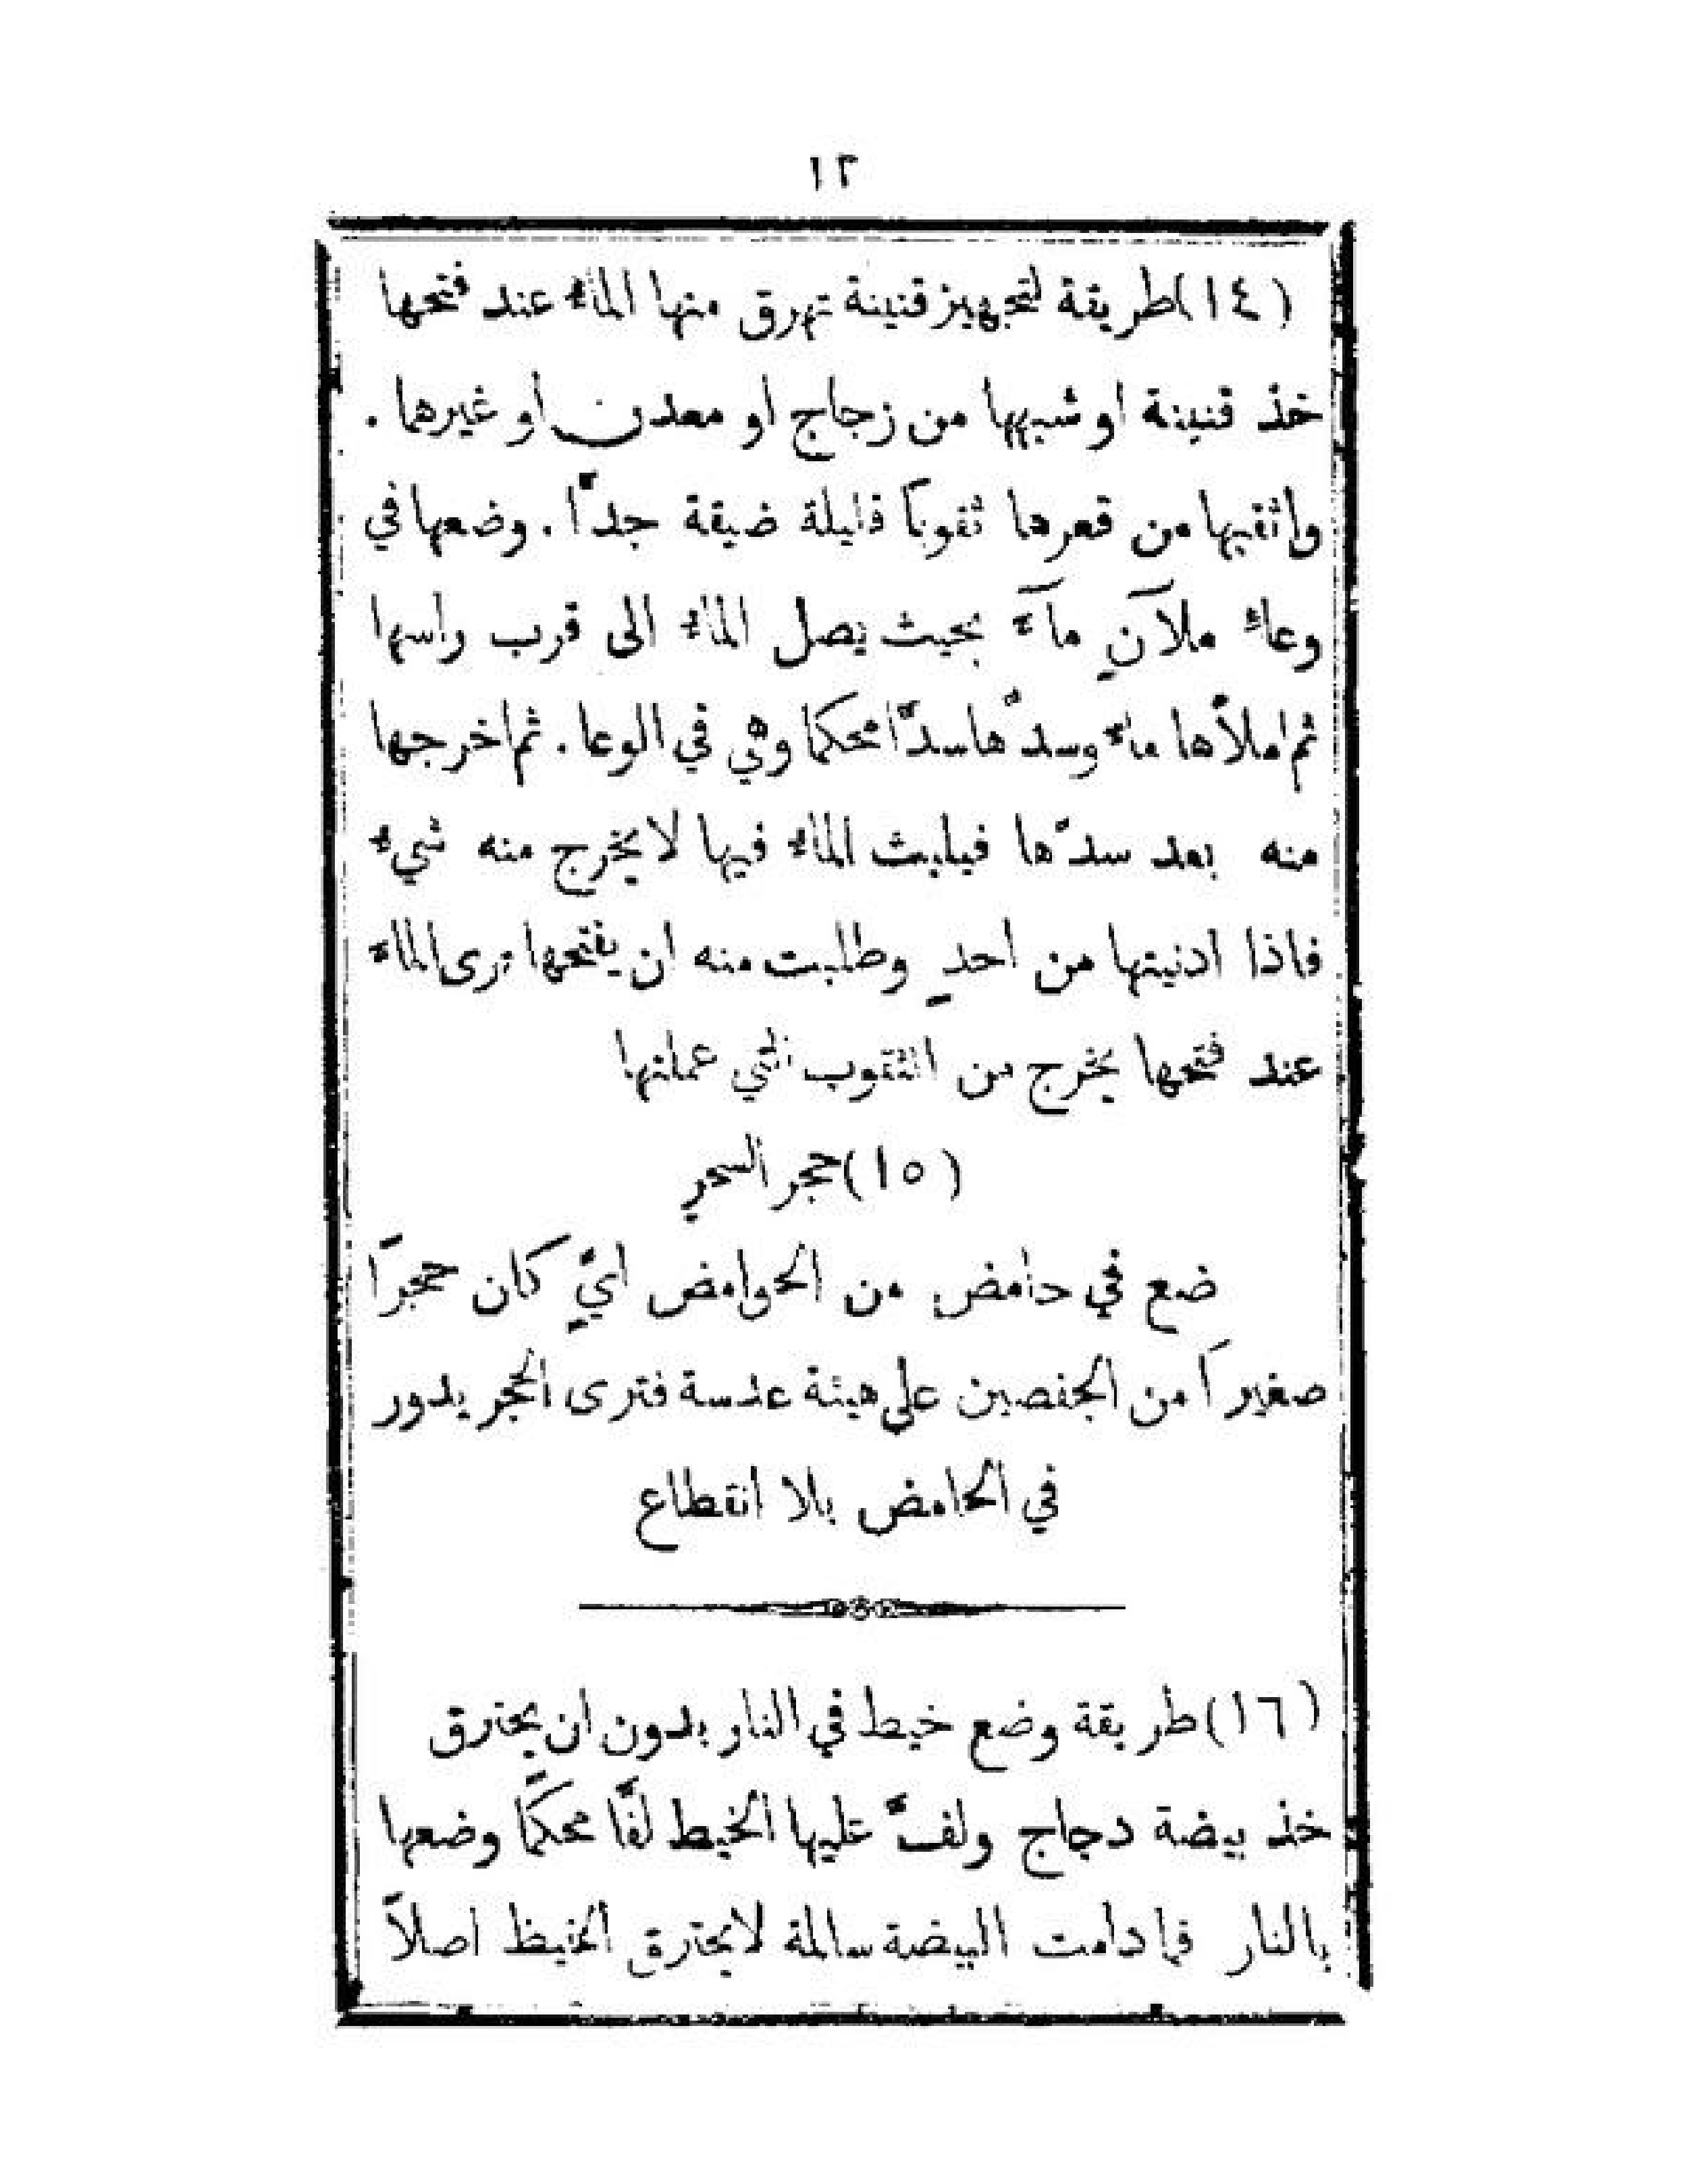 ١٢
(١٤) طريقة لتجهيز قنينة تهرق منها الماء عند فتحها
خذ قنينة او شبهها من زجاج او معدن او غيرهما .
واثقبها من قعرها ثقوبًا قليلة ضيقة جدًّا . وضعها في
وعاء ملآنٍ مآء بحيث يصل الماء الى قرب راسها
ثم املأها ماء وسدّها سدًّا محكما وهي في الوعا . ثم اخرجها
منه بعد سدّها فيلبث الماء فيها لا يخرج منه شيء
فاذا ادنيتها من احدٍ وطلبت منه ان يفتحها يرى الماء
عند فتحها يخرج من الثقوب التي عملتها
(١٥) حجر السحر
ضع في حامض من الحوامض ايٍّ كان حجرًا
صغيرًا من الجفصين على هيئة عدسة فترى الحجر يدور
في الحامض بلا انقطاع
(١٦) طريقة وضع خيط في النار بدون ان يحترق
خذ بيضة دجاج ولفّ عليها الخيط لفًّا محكمًا وضعها
بالنار فما دامت البيضة سالمة لا يحترق الخيط اصلاً